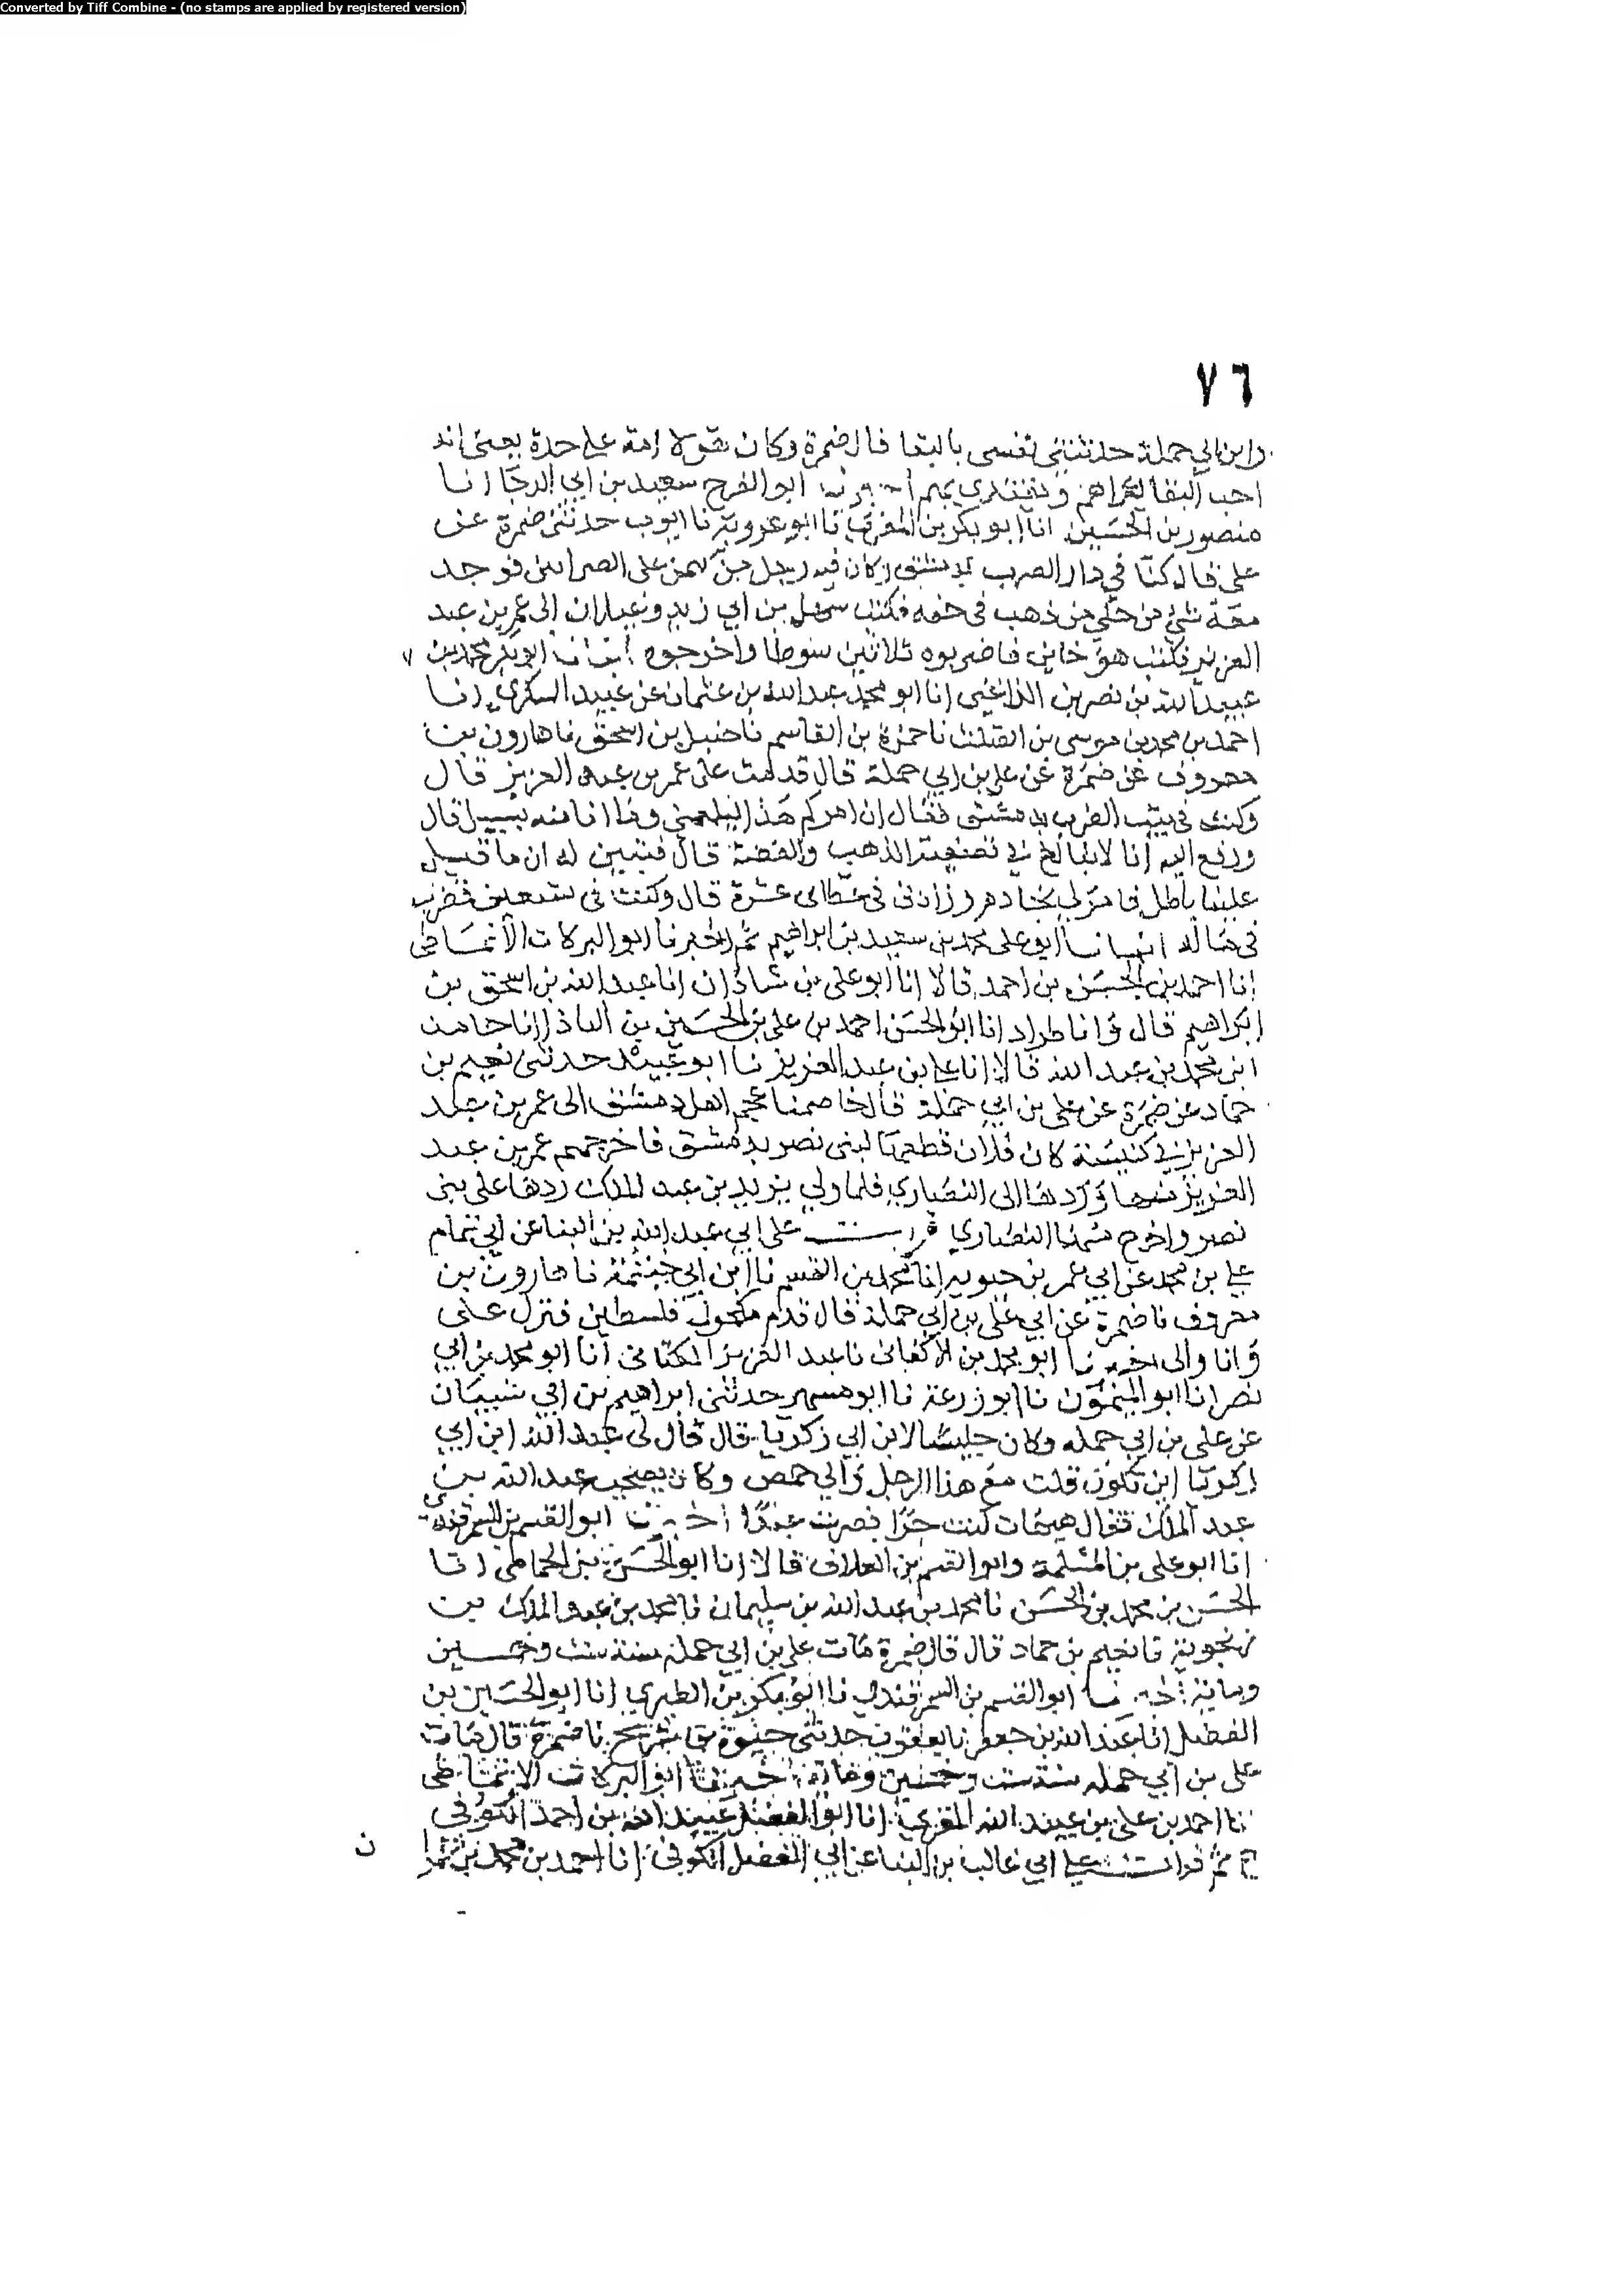 Converted by Tiff Combine - (no stamps are applied by registered version)
٧٦
وابن ابي حملة حدثتني نفسي بالبقا قال ضمرة وكان يقول امة على حدة يعني انه
احب البقا ويقتدي بهم ابو الفرج سعيد بن ابي الرجا انا
منصور بن الحسين انا ابو بكر بن المقرئ نا ابو عروبة نا ايوب حدثني ضمرة عن
علي قال كنا في دار الضرب بدمشق وكان فيه رجل على فوجد
معه شئ من حلي من ذهب في خفه فكتب سهيل بن ابي زيد الى عمر بن عبد
العزيز فكتب هو خاين فاضربوه ثلاثين سوطا واخرجوه ابو بكر محمد بن
عبيد الله بن نصر بن الزاغني انا ابو محمد عبد الله بن عثمان عن عبيد السكري انا
احمد بن محمد بن موسى بن الصلت نا حمزة بن القاسم نا حنبل بن اسحق نا هارون بن
معروف عن ضمرة عن علي بن ابي حملة قال قدمت على عمر بن عبد العزيز قال
وكنت في بيت الضرب بدمشق فقال ان امركم هذا وما انا منه بسبيل قال
ورفع اليه انا لا نبالغ في تصفية الذهب والفضة قال فتبين له ان ما قيل
علينا باطل فامر لي بخادم وزادني في عطاى عشرة قال وكنت في فضرب
في ابو علي محمد بن سعيد بن ابراهيم ثم اخبرنا ابو البركات الانماطي
انا احمد بن الحسن بن احمد قالا انا ابو علي بن شاذان انا عبد الله بن اسحق بن
ابراهيم قال وانا طراد انا ابو الحسن احمد بن علي بن الحسين بن الباذا انا حامد
ابن محمد بن عبد الله قالا انا علي بن عبد العزيز نا ابو عبيد حدثني نعيم بن
حماد عن ضمرة عن علي بن ابي حملة قال خاصمنا عجم اهل دمشق الى عمر بن عبد
العزيز في كنيسة كان فلان قطعها لبني نصر بدمشق فاخرجهم عمر بن عبد
العزيز منها وردها الى النصارى فلما ولي يزيد بن عبد الملك ردها على بني
نصر واخرج منها النصارى قرات على ابي عبد الله بن البنا عن ابي تمام
علي بن محمد عن ابي عمر بن حيويه انا محمد بن القسم نا ابن ابي خيثمة نا هارون بن
معروف نا ضمرة عن ابي علي بن ابي حملة قال قدم مكحول فلسطين فنزل على
وانا والى اخبرنا ابو محمد بن الاكفاني نا عبد العزيز الكتاني انا ابو محمد بن ابي
نصر انا ابو الميمون نا ابو زرعة نا ابو مسهر حدثني ابراهيم بن ابي شيبان
عن علي بن ابي حمله وكان جليسا لابن ابي زكريا قال قال لي عبد الله ابن ابي
زكريا اين تكون قلت مع هذا الرجل والي حمص وكان يصحب عبد الله بن
عبد الملك فقال هيهات كنت حرا فصرت عبدا اخبرنا ابو القسم بن السمرقندي
انا ابو علي بن المسلمة وابو القسم بن العلاف قالا انا ابو الحسن بن الحمامي انا
الحسن بن محمد بن الحسن نا محمد بن عبد الله بن سليمان نا محمد بن عبد الملك بن
زنجويه نا نعيم بن حماد قال قال ضمرة مات علي بن ابي حمله سنة ست وخمسين
وماية اخبرنا ابو القسم بن السمرقندي نا ابو بكر بن الطبري انا ابو الحسين بن
الفضل انا عبد الله بن جعفر نا يعقوب حدثني حيوة بن شريح نا ضمرة قال مات
علي بن ابي حمله سنة ست وخمسين وماية اخبرنا ابو البركات الانماطي
نا احمد بن علي بن عبيد الله المقرئ انا ابو الفضل عبيد الله بن احمد الكوفي
ح ثم قرات على ابي غالب بن البنا عن ابي الفضل الكوفي انا احمد بن محمد بن
ن